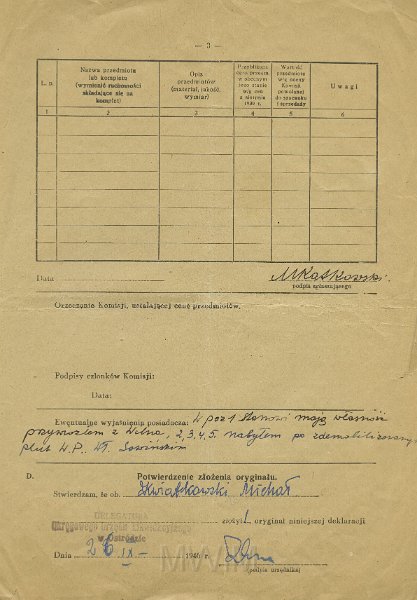 — 3 —
L. p.
Nazwa przedmiotu
lub kompletu
(wymienić ruchomości
składające się na
komplet)
Opis
przedmiotów
(materiał, jakość,
wymiar)
Przybliżona
cena przedm.
w obecnym
jego stanie
wg cen
z sierpnia
1939 r.
Wartość
przedmiotu
wg oceny
Komisji
powołanej
do szacunku
i sprzedaży
Uwagi
1 2 3 4 5 6
Data
MKątkowski
podpis zgłaszającego
Orzeczenie Komisji, ustalającej cenę przedmiotów.
Podpisy członków Komisji:
Data:
Ewentualne wyjaśnienia posiadacza: w poz 1 stanowi moją własność
przywiozłem z Wilna, 2, 3, 4, 5. nabyłem po zdemobilizowanym
plut W.P.
D. Potwierdzenie złożenia oryginału.
Stwierdzam, że ob. Kwiatkowski Michał
złożył oryginał niniejszej deklaracji
DELEGATURA
Okręgowego Urzędu Likwidacyjnego
w Ostródzie
Dnia 26 IX – 1946 r.
podpis urzędnika